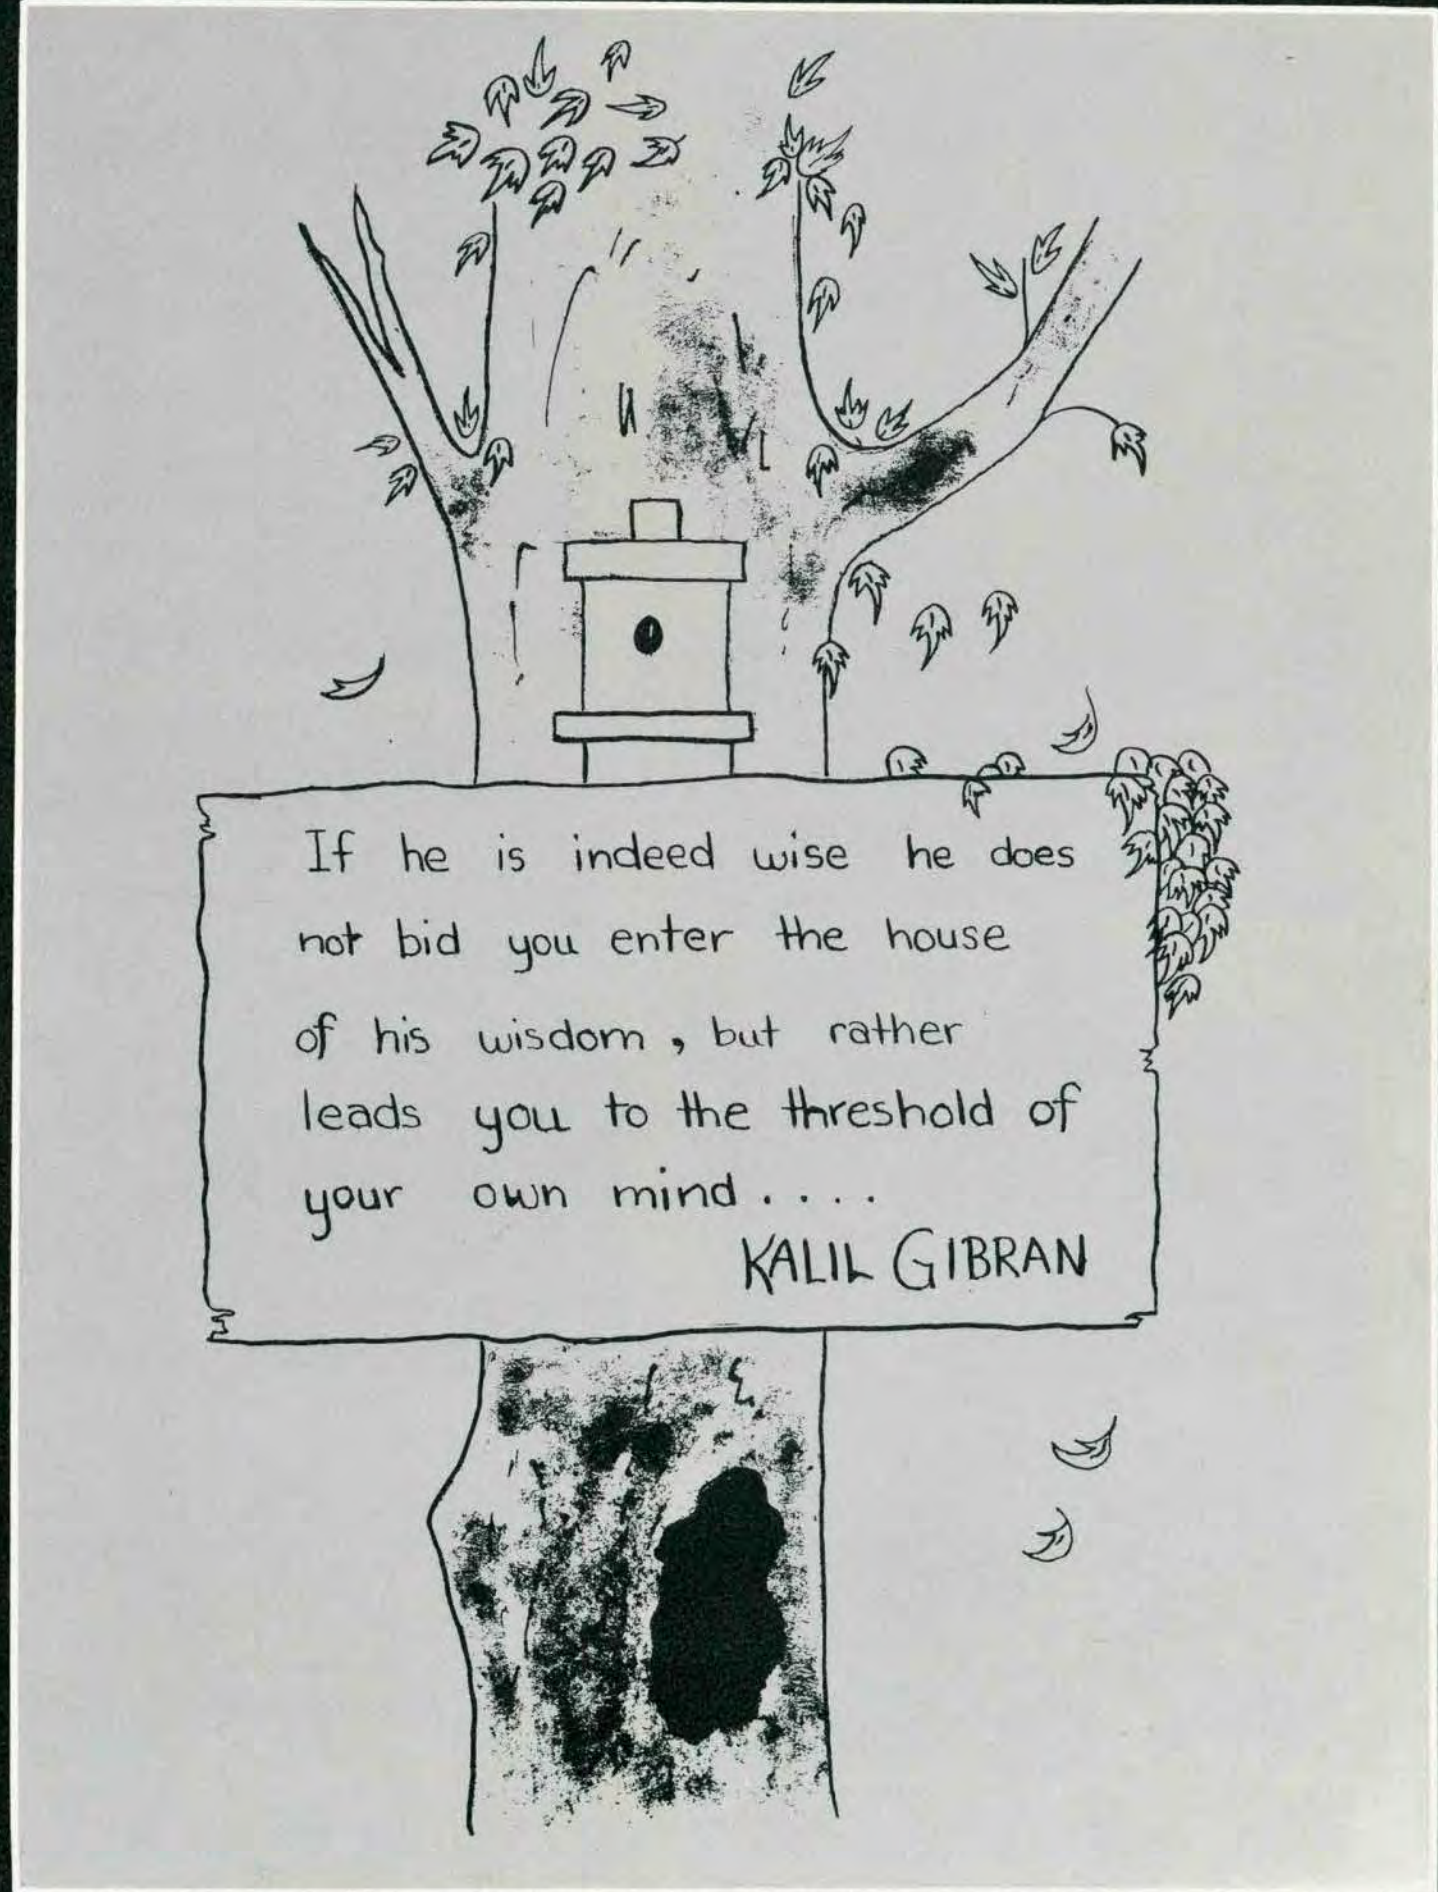 If he is indeed wise he does
not bid you enter the house
of his wisdom, but rather
leads you to the threshold of
your own mind....
KALIL GIBRAN